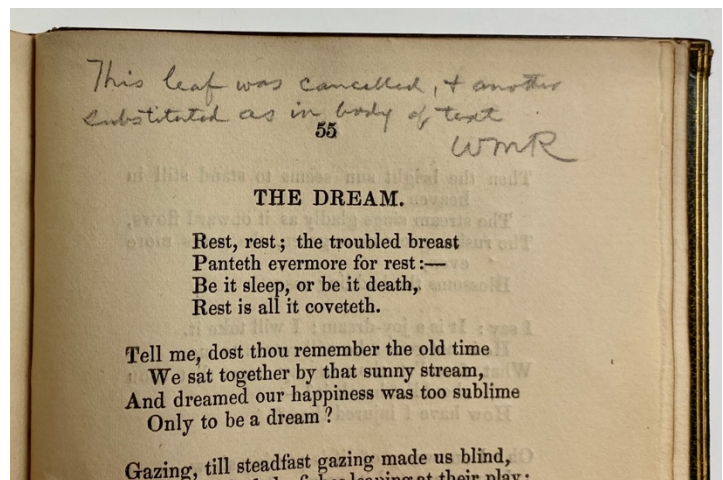 This leaf was cancelled, & another
substituted as in body of text
55
WMR
THE DREAM.
Rest, rest; the troubled breast
Panteth evermore for rest:—
Be it sleep, or be it death,
Rest is all it coveteth.
Tell me, dost thou remember the old time
We sat together by that sunny stream,
And dreamed our happiness was too sublime
Only to be a dream?
Gazing, till steadfast gazing made us blind,
leaping at their play;